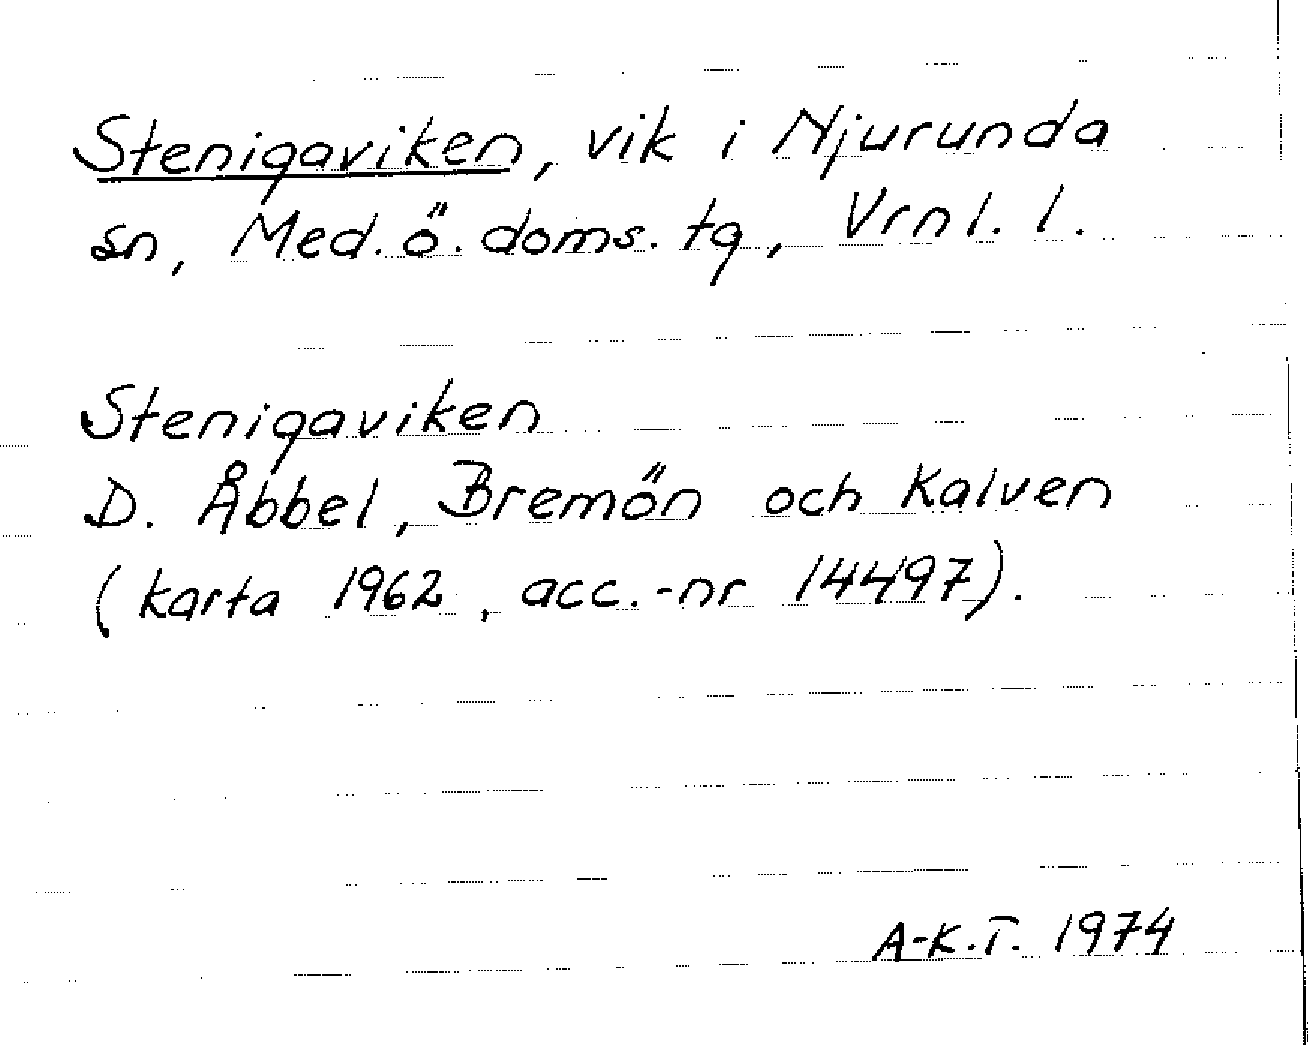 Stenigaviken, vik i Njurunda
sn, Med. ö. doms. tg, Vrnl. l.
Stenigaviken
D. Åbbel, Bremön och Kalven
(karta 1962, acc.-nr 14497).
A-K.T. 1974